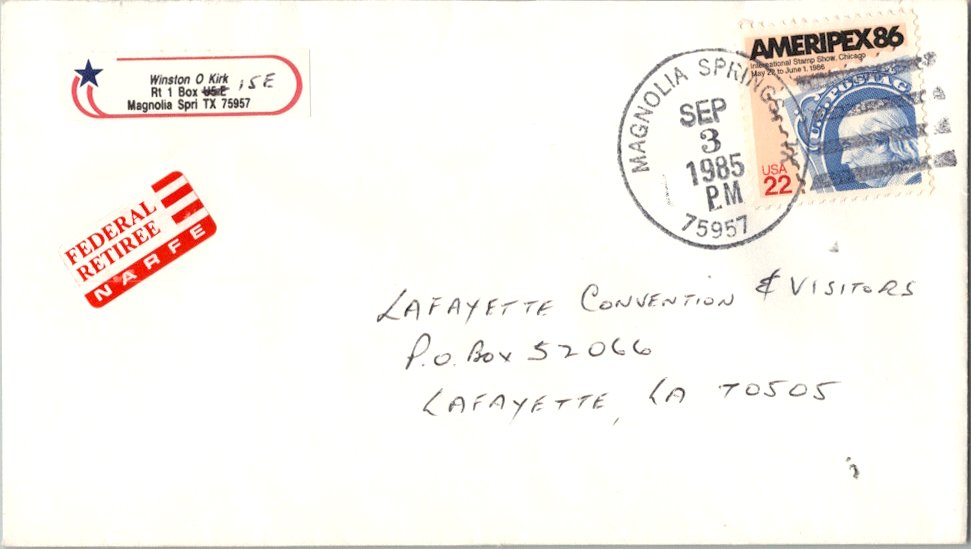 Winston O Kirk
Rt 1 Box 15E
Magnolia Spri TX 75957
FEDERAL
RETIREE
NARFE
MAGNOLIA SPRINGS
SEP
3
1985
PM
75957
AMERIPEX86
International Stamp Show, Chicago
May 22 to June 1, 1986
U.S. POSTAGE
USA
22
LAFAYETTE CONVENTION & VISITORS
P.O. BOX 52066
LAFAYETTE, LA 70505